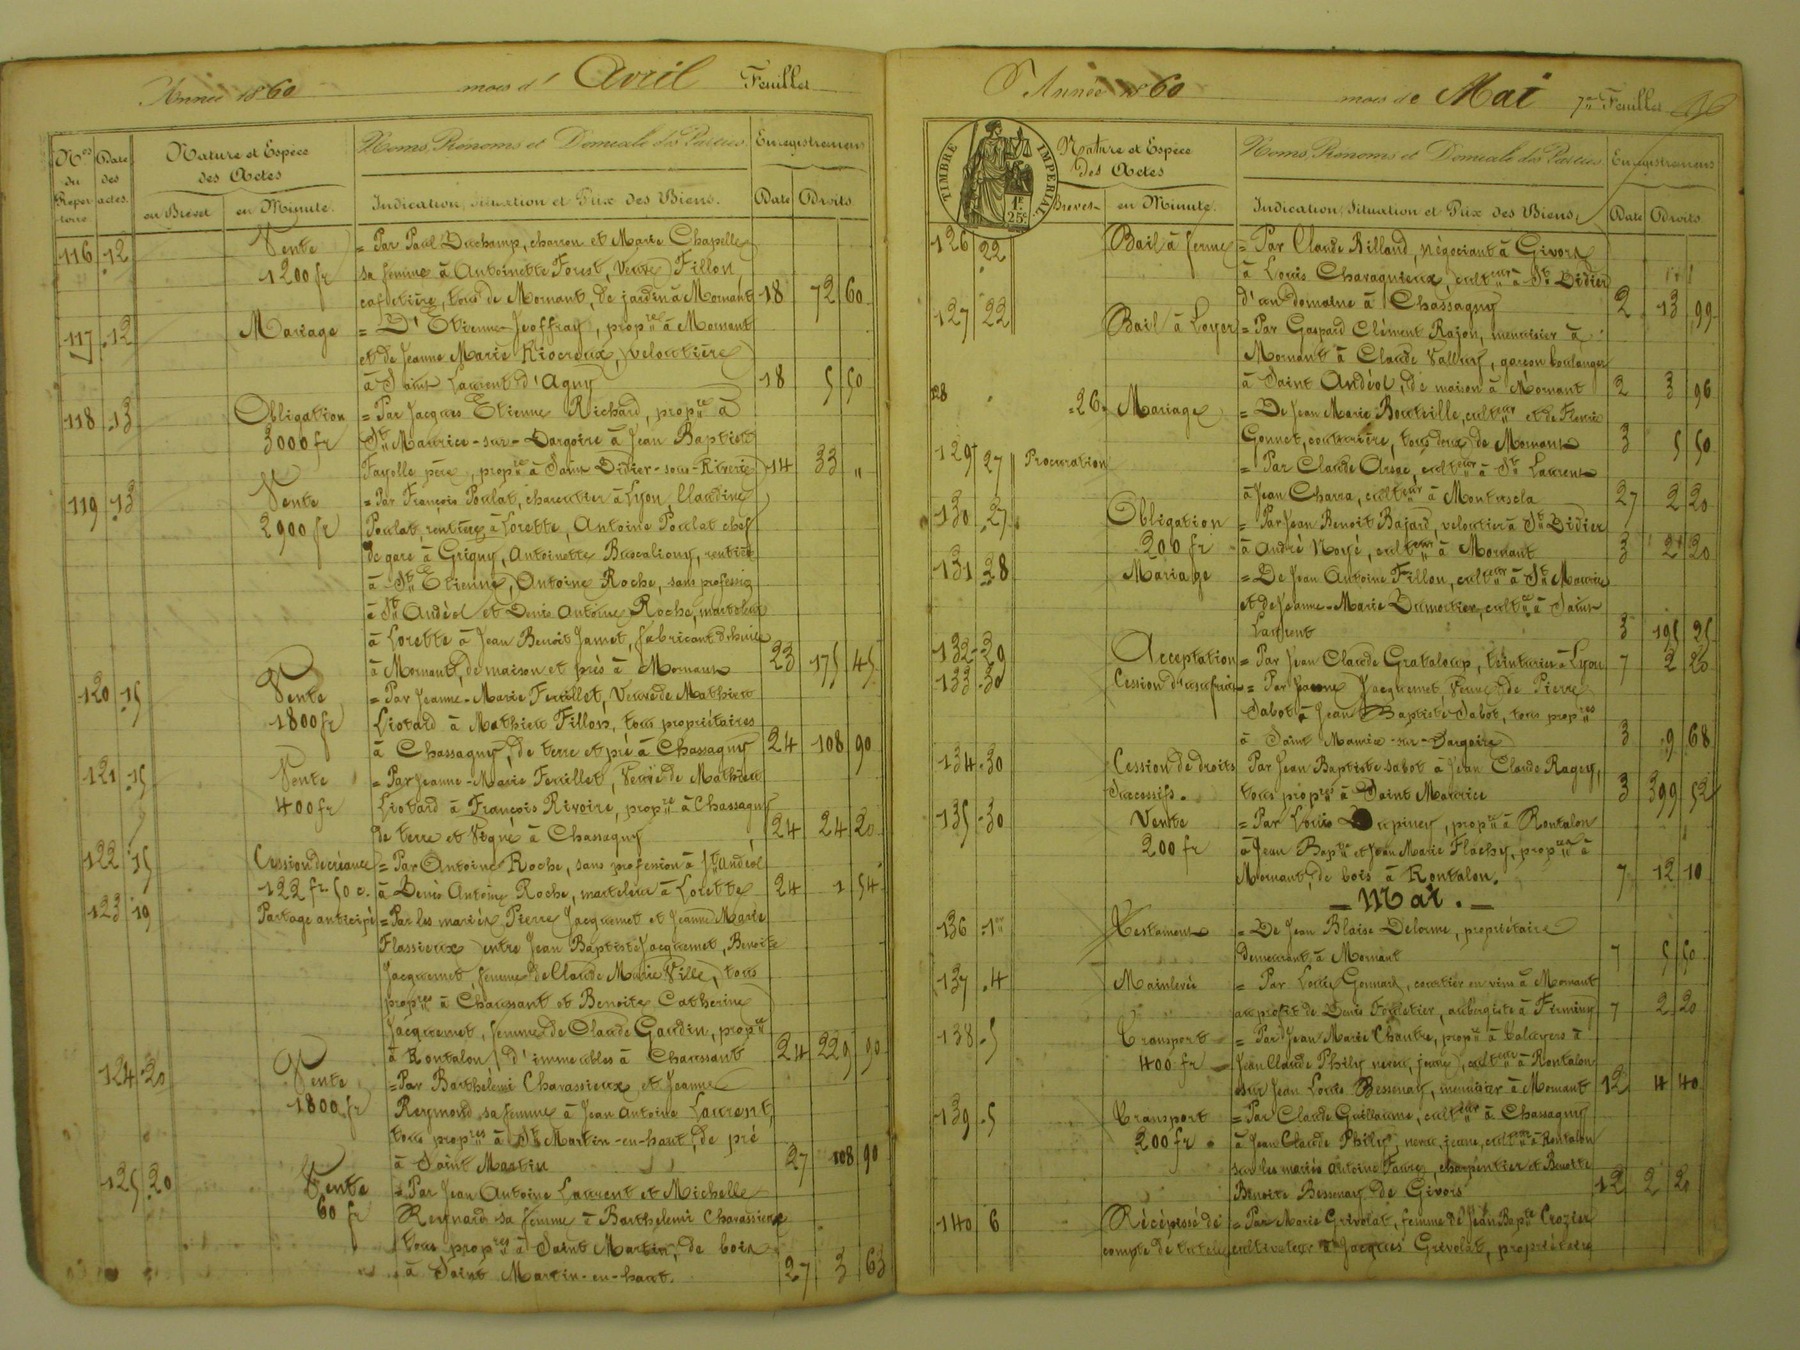 Année 1860 mois d' Avril Feuillet
Nos du Répertoire
Date des actes.
Nature et Espèce des Actes
en Brevet
en Minute.
Noms, Prénoms et Domicile des Parties
Indication, Situation et Prix des Biens.
Enregistrement
Date
Droits
116 12 Vente = Par Paul Duchamp, charron et Marie Chapelle
1200 fr sa femme à Antoinette Forest, Veuve Fillon,
cafetière, tous de Mornant, de jardin à Mornant 18 72 60
117 12 Mariage = D'Etienne Jeoffray, propre à Mornant
et de Jeanne Marie Riocreux, veloutière
à Saint Laurent d'Agny 18 5 50
118 13 Obligation = Par Jacques Etienne Richard, propre à
3000 fr St Maurice-sur-Dargoire à Jean Baptiste
Fayolle père, propre à Saint Didier-sous-Riverie 14 33 "
119 13 Vente = Par François Poulat, charcutier à Lyon, Claudine
2900 fr Poulat, rentière à Lorette, Antoine Poulat chef
de gare à Grigny, Antoinette rentière
à St Etienne, Antoine Roche, sans profession
à St Andéol et Denis Antoine Roche, marteleur
à Lorette à Jean Benoit Jamet, fabricant d'huile
à Mornant, de maison et prés à Mornant 23 175 45
120 15 Vente = Par Jeanne-Marie Ferrillet, Veuve de Mathieu
1800 fr Liotard à Mathieu Fillon, tous propriétaires
à Chassagny, de terre et pré à Chassagny 24 108 90
121 15 Vente = Par Jeanne-Marie Ferrillet, Veuve de Mathieu
400 fr Liotard à François Rivoire, propre à Chassagny
de terre et Vigne à Chassagny 24 24 20
122 15 Cession de créance = Par Antoine Roche, sans profession à St Andéol
122 fr 50 c. à Denis Antoine Roche, marteleur à Lorette 24 1 54
123 19 Partage anticipé = Par les mariés Pierre Jacquemet et Jeanne Marie
Flassieux entre Jean Baptiste Jacquemet, Benoite
Jacquemet, femme de Claude Marie Ville, tous
propres à Chaussant et Benoite Catherine
Jacquemet, femme de Claude Gaudin, propre
à Rontalon, d'immeubles à Chaussant 24 229 90
124 20 Vente = Par Barthélemi Chavassieux et Jeanne
1800 fr Reymond sa femme à Jean Antoine Laurent,
tous propres à St Martin-en-haut, de pré
à Saint Martin 27 108 90
125 20 Vente = Par Jean Antoine Laurent et Michelle
60 fr Reynard sa femme à Barthelemi Chavassieux
tous propres à Saint Martin, de bois
à Saint Martin-en-haut. 27 3 63
Année 1860 mois de Mai 7e Feuillet
TIMBRE IMPERIAL
1F. 25C.
Nature et Espèce des Actes
Brevet
en Minute.
Noms, Prénoms et Domicile des Parties
Indication, Situation et Prix des Biens.
Enregistrement
Date
Droits
126 22 Bail à ferme = Par Claude Billand, négociant à Givors
à Louis Charagnieux, culteur à St Didier
d'un domaine à Chassagny 2 13 99
127 22 Bail à Loyer = Par Gaspard Clément Rajon, menuisier à
Mornant à Claude Valluy, garçon boulanger
à Saint Andéol, de maison à Mornant 2 3 96
128 26 Mariage = De Jean Marie Bouteille, culteur et de Fleurie
Gonnet, couturière, tous deux de Mornant 3 5 50
129 27 Procuration = Par Claude Arsac, culteur à St Laurent
à Jean Charra, culteur à Montuscla 27 2 20
130 27 Obligation = Par Jean Benoit Bajard, veloutier à St Didier
200 fr à André Noyé, culteur à Mornant 3 2 20
131 28 Mariage = De Jean Antoine Fillon, culteur à St Maurice
et de Jeanne-Marie Dumortier, cultce à Saint
Laurent 3 195 25
132 29 Acceptation = Par Jean Claude Grataloup, teinturier à Lyon 7 2 20
133 30 Cession d'usufruit = Par Jeanne Jacquemet, Veuve de Pierre
Sabot à Jean Baptiste Sabot, tous propres
à Saint Maurice-sur-Dargoire 3 9 68
134 30 Cession de droits Par Jean Baptiste Sabot à Jean Claude Ragey,
Successifs. tous propres à Saint Maurice 3 399 52
135 30 Vente = Par Louis Dupiney, propre à Rontalon
200 fr à Jean Bapte et Jean Marie Flachy, propres à
Mornant, de bois à Rontalon. 7 12 10
Mai.
136 1er Testament = De Jean Blaise Delorme, propriétaire
demeurant à Mornant 7 5 50
137 4 Mainlevée = Par Louis Gonnard, courtier en vins à Mornant
au profit de Denis Fouletier, aubergiste à Firminy 7 2 20
138 5 Transport = Par Jean Marie Chantre, propre à Taluyers à
400 fr Jean Claude Philip neveu, jeune, culteur à Rontalon
sur Jean Louis Bessenay, menuisier à Mornant 12 4 40
139 5 Transport = Par Claude Guillaume, culteur à Chassagny
200 fr à Jean Claude Philip, neveu, jeune, culteur à Rontalon
sur les mariés Antoine Favre, charpentier et Benoite
Benoite Bessenay de Givors 12 2 20
140 6 Récépissé de = Par Marie Grivolat, femme de Jean Bapte Crozier
compte de tutelle cultivateur à Jacques Grivolat, propriétaire